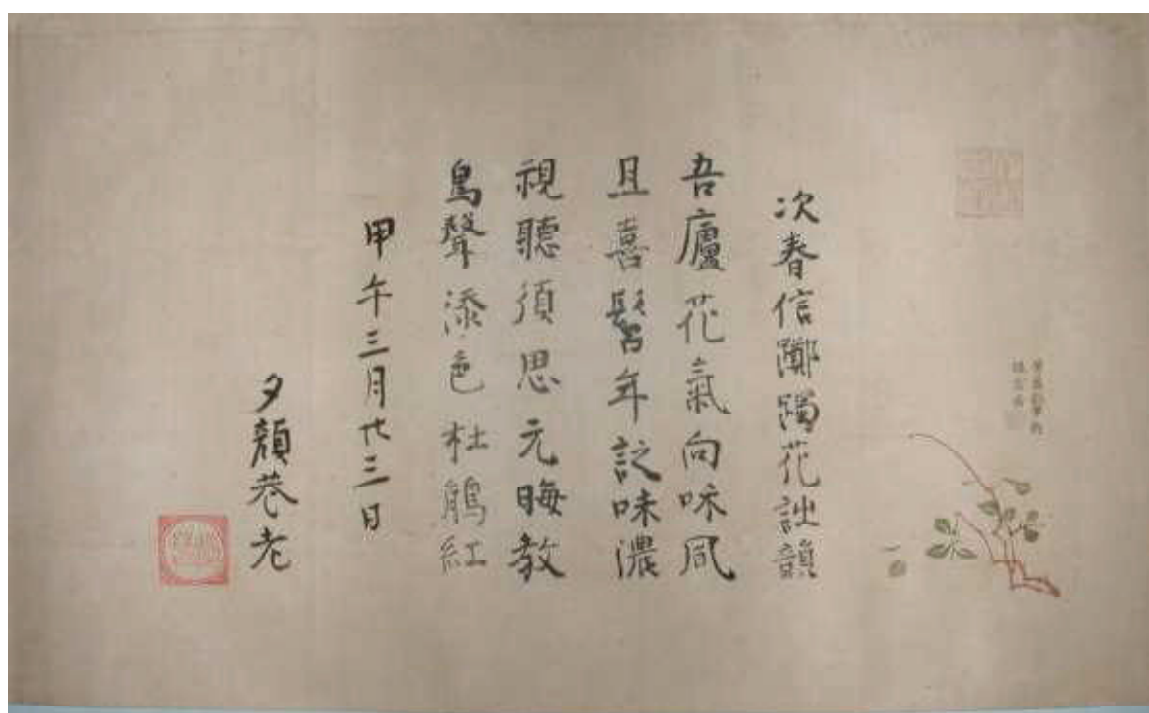 次春信躑躅花詠韻
吾廬花氣向咊風
且喜髫年記味濃
視聽須思元晦教
鳥聲添色杜鵑紅
甲午三月廿三日
夕顏巷老